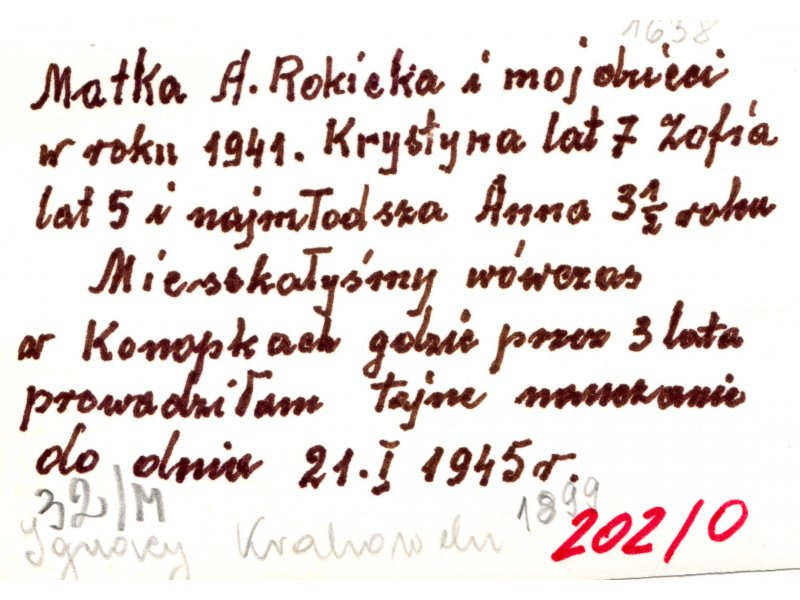 1638
Matka A. Rokicka i moj dzieci
w roku 1941. Krystyna lat 7 Zofia
lat 5 i najmłodsza Anna 3 1/2 roku
Mieszkałyśmy wówczas
w Konopkach gdzie przez 3 lata
prowadziłam tajne nauczanie
do dnia 21.I 1945 r.
32/M
1899
Ignacy
202/0